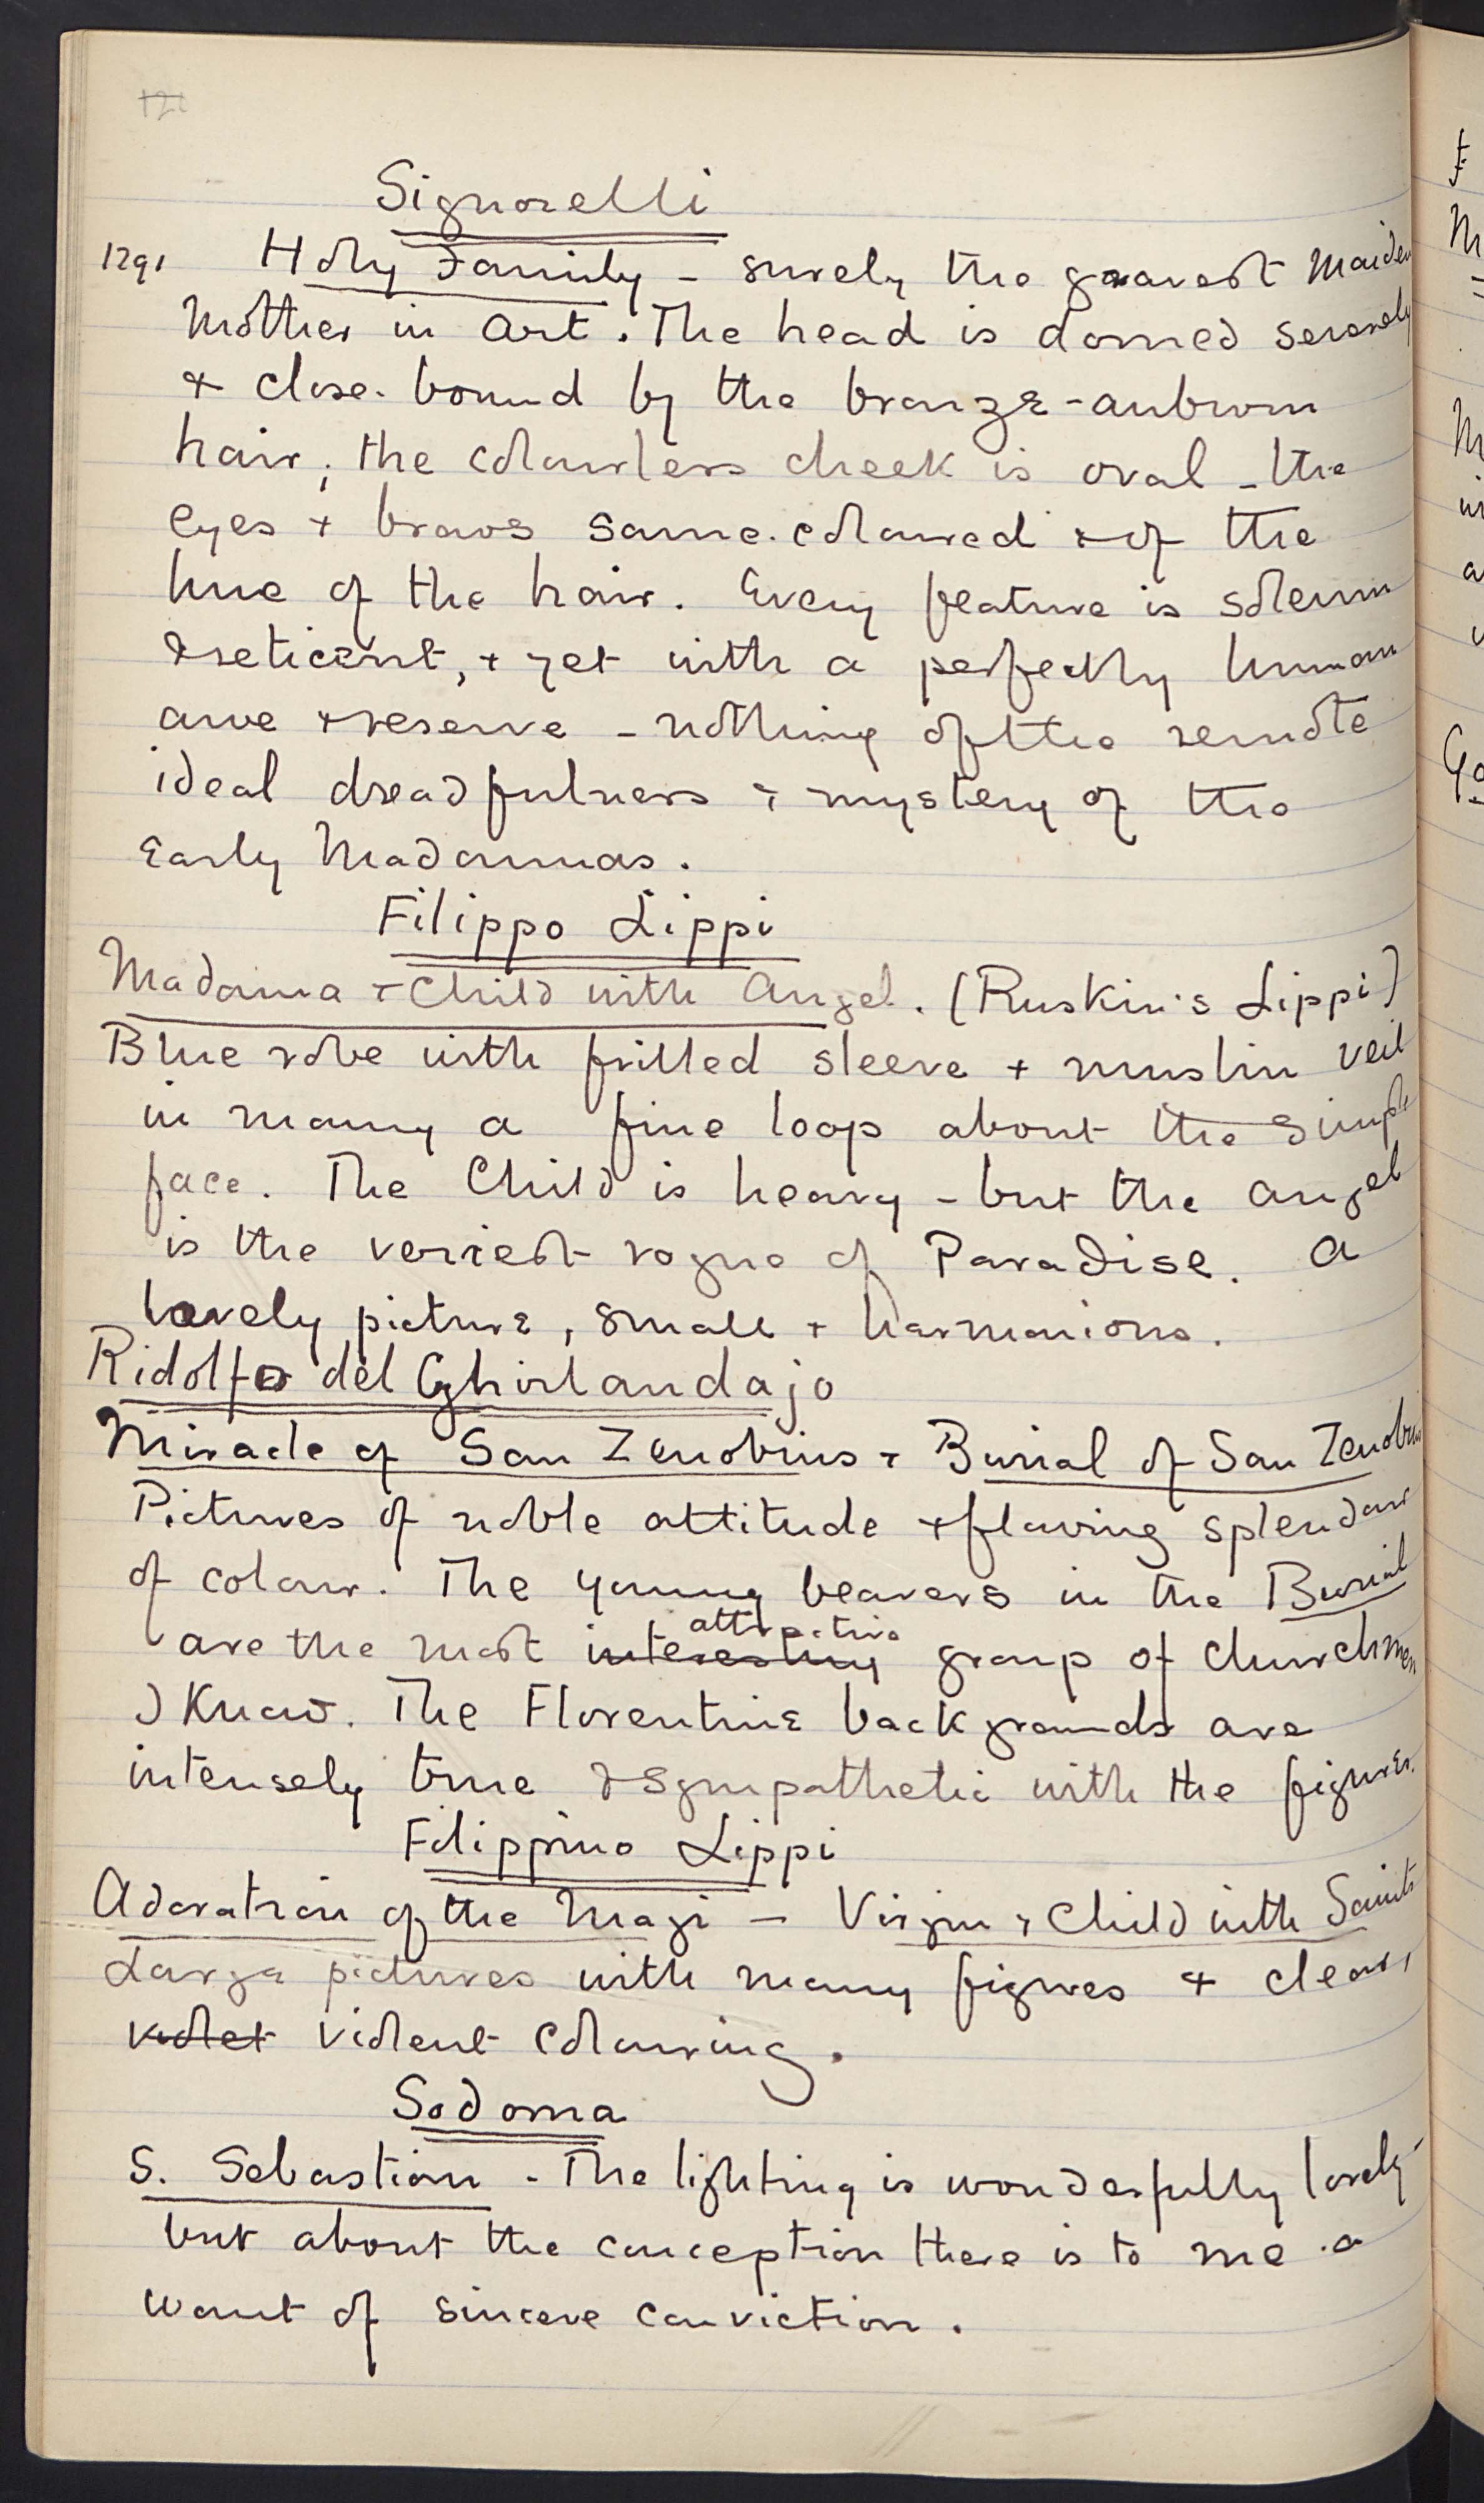 121
Signorelli
1291 Holy Family - surely the gravest Maiden
Mother in Art. The head is domed serenely
& close-bound by the bronze-auburn
hair; the colourless cheek is oval - the
eyes & brows same-coloured & of the
hue of the hair. Every feature is solemn
& reticent, & yet with a perfectly human
awe & reserve - nothing of the remote
ideal dreadfulness & mystery of the
Early Madonnas.
Filippo Lippi
Madonna & Child with Angel. (Ruskin's Lippi)
Blue robe with frilled sleeve & muslin veil
in many a fine loop about the simple
face. The Child is heavy - but the angel
is the veriest rogue of Paradise. A
lovely picture, small & harmonious.
Ridolfo del Ghirlandajo
Miracle of San Zenobius & Burial of San Zenobius
Pictures of noble attitude & flaring splendour
of colour. The young bearers in the Burial
are the most interesting attractive group of churchmen
I know. The Florentine backgrounds are
intensely true & sympathetic with the figures.
Filippino Lippi
Adoration of the Magi - Virgin & Child with Saints
Large pictures with many figures & clear,
violet violent colouring.
Sodoma
S. Sebastian - The lighting is wonderfully lovely -
but about the conception there is to me a
want of sincere conviction.